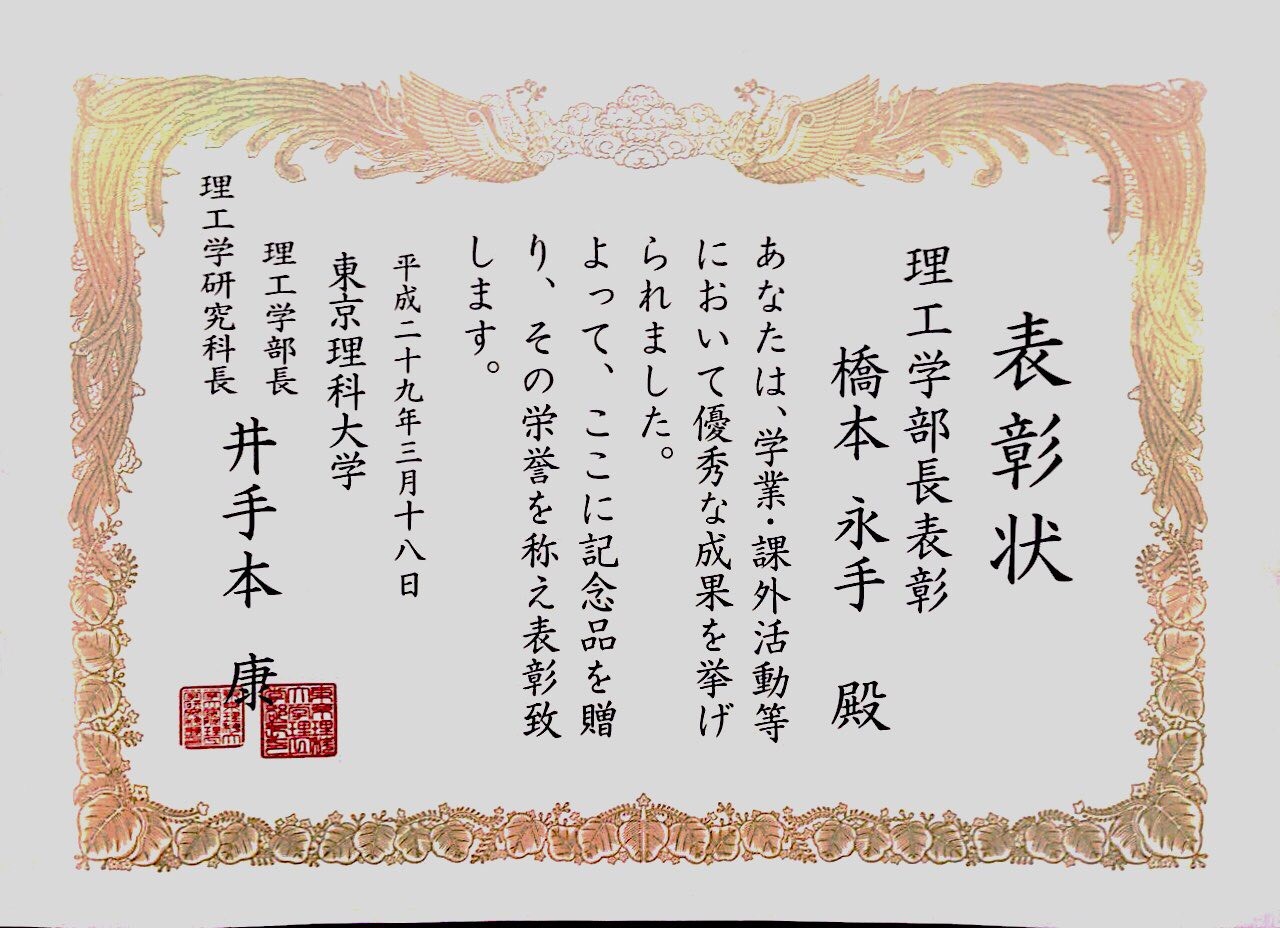 表彰状
理工学部長表彰
橋本 永手 殿
あなたは、学業・課外活動等
において優秀な成果を挙げ
られました。
よって、ここに記念品を贈
り、その栄誉を称え表彰致
します。
平成二十九年三月十八日
東京理科大学
理工学部長
理工学研究科長
井手本 康